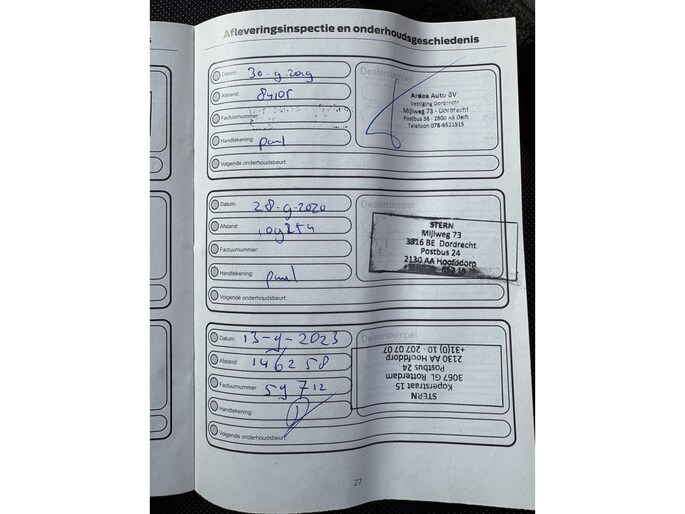 Afleveringsinspectie en onderhoudsgeschiedenis
Datum: 30-9-2019
Dealerstempel
Afstand: 84105
Factuurnummer:
Handtekening: paul
Volgende onderhoudsbeurt:
Ardea Auto BV
Vestiging Dordrecht
Mijlweg 73 - Dordrecht
Postbus 56 - 2600 AB Delft
Telefoon 078-6521515
Datum: 28-9-2020
Dealerstempel
Afstand: 109254
Factuurnummer:
Handtekening: paul
Volgende onderhoudsbeurt:
STERN
Mijlweg 73
3316 BE Dordrecht
Postbus 24
2130 AA Hoofddorp
Datum: 13-9-2023
Dealerstempel
Afstand: 146258
Factuurnummer: 59712
Handtekening:
Volgende onderhoudsbeurt:
STERN
Koperstraat 15
3067 GL Rotterdam
Postbus 24
2130 AA Hoofddorp
+31(0) 10 - 207 07 07
27